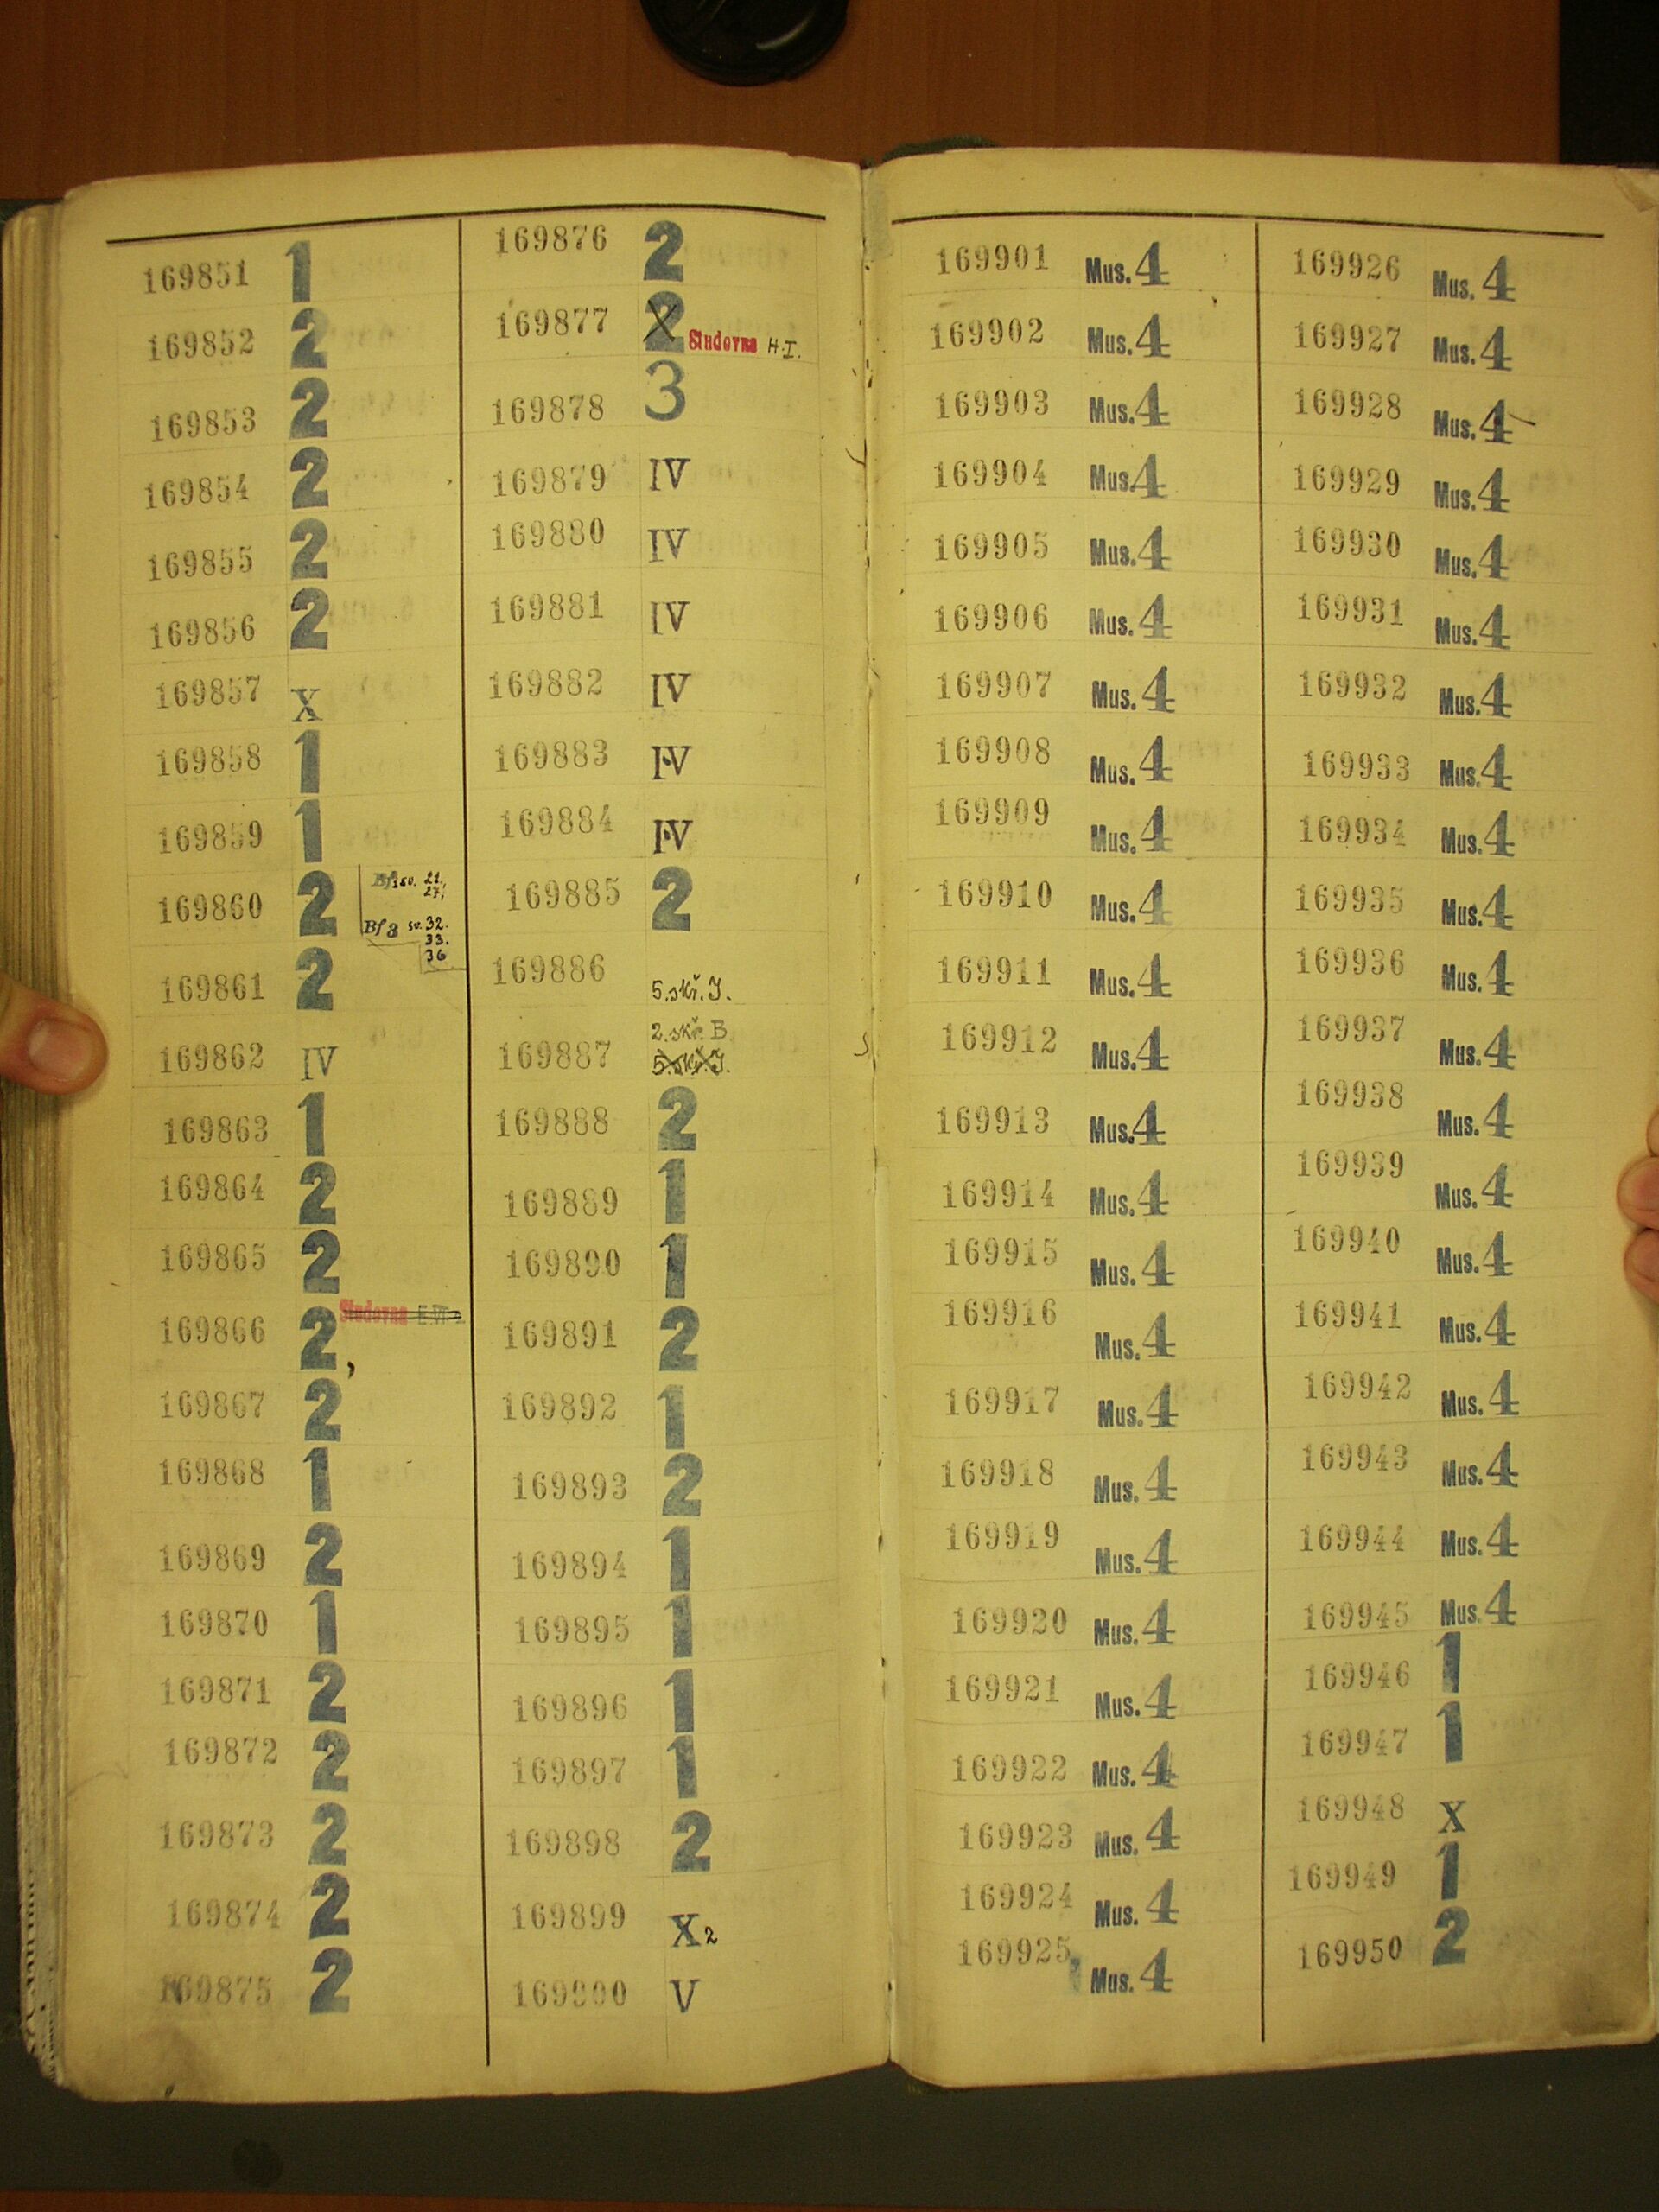 169851 1
169852 2
169853 2
169854 2
169855 2
169856 2
169857 X
169858 1
169859 1
169860 2 Bf 1 sv. 21. 27,
Bf 3 sv. 32.
33.
36
169861 2
169862 IV
169863 1
169864 2
169865 2
Studovna E.VI
169866 2,
169867 2
169868 1
169869 2
169870 1
169871 2
169872 2
169873 2
169874 2
169875 2
169876 2
169877 2 Studovna H.I.
169878 3
169879 IV
169880 IV
169881 IV
169882 IV
169883 IV
169884 IV
169885 2
169886 5.skř.J.
2.skř. B
169887 5.skř.J.
169888 2
169889 1
169890 1
169891 2
169892 1
169893 2
169894 1
169895 1
169896 1
169897 1
169898 2
169899 X 2
169900 V
169901 Mus. 4
169902 Mus. 4
169903 Mus. 4
169904 Mus. 4
169905 Mus. 4
169906 Mus. 4
169907 Mus. 4
169908 Mus. 4
169909 Mus. 4
169910 Mus. 4
169911 Mus. 4
169912 Mus. 4
169913 Mus. 4
169914 Mus. 4
169915 Mus. 4
169916 Mus. 4
169917 Mus. 4
169918 Mus. 4
169919 Mus. 4
169920 Mus. 4
169921 Mus. 4
169922 Mus. 4
169923 Mus. 4
169924 Mus. 4
169925 Mus. 4
169926 Mus. 4
169927 Mus. 4
169928 Mus. 4
169929 Mus. 4
169930 Mus. 4
169931 Mus. 4
169932 Mus. 4
169933 Mus. 4
169934 Mus. 4
169935 Mus. 4
169936 Mus. 4
169937 Mus. 4
169938 Mus. 4
169939 Mus. 4
169940 Mus. 4
169941 Mus. 4
169942 Mus. 4
169943 Mus. 4
169944 Mus. 4
169945 Mus. 4
169946 1
169947 1
169948 X
169949 1
169950 2